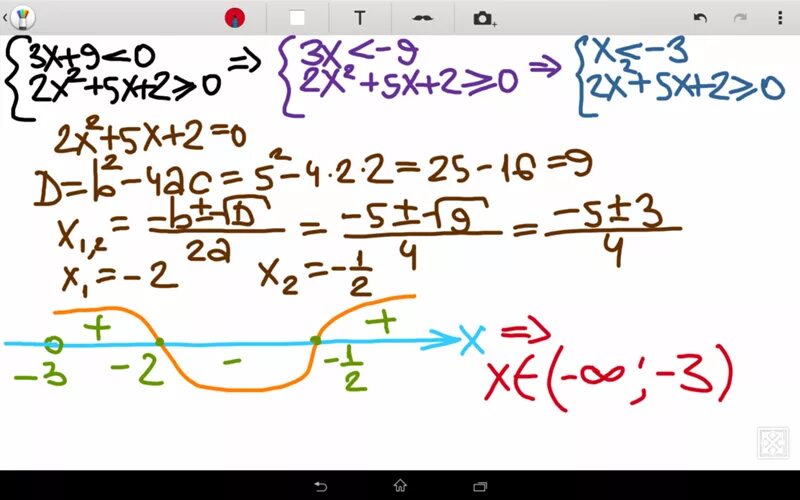 T
{3x+9<0 => {3x<-9 => {x<-3
2x²+5x+2≥0 2x²+5x+2≥0 2x²+5x+2≥0
2x²+5x+2=0
D=b²-4ac=5²-4·2·2=25-16=9
x₁,₂ = (-b±√D)/2a = (-5±√9)/4 = (-5±3)/4
x₁=-2 x₂=-1/2
+ - + x =>
-3 -2 -1/2 x∈(-∞;-3)